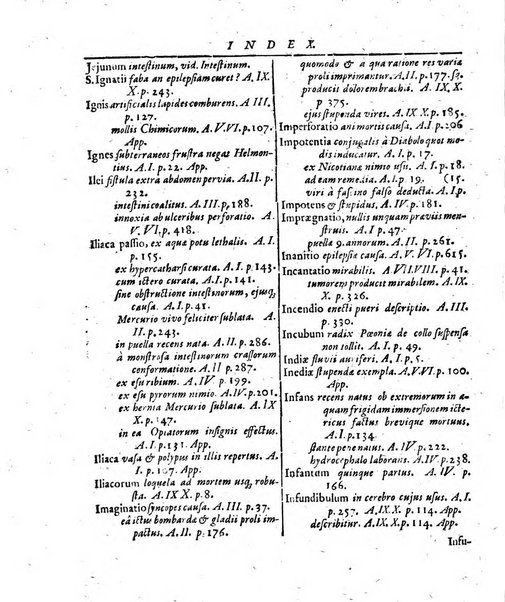 INDEX.
Jejunum intestinum, vid. Intestinum.
S. Ignatii faba an epilepsiam curet? A. IX
X. p. 243.
Ignis artificialis lapides comburens. A III.
p. 127.
mollis Chimicorum. A. V. VI. p. 107.
App.
Ignes subterraneos frustra negas Helmon-
tius. A. II. p. 22. App.
Ilei fistula extra abdomen pervia. A. II. p.
232.
intestini coalitus. A. III. p. 188.
innoxia ab ulceribus perforatio. A.
V. VI. p. 418.
Iliaca passio, ex aqua potu lethalis. A. I.
p. 155.
ex hypercatharsi curata. A. I. p. 143.
cum ictero curata. A. I. p. 141.
sine obstructione intestinorum, ejusq;
causa. A. I. p. 141.
Mercurio vivo feliciter sublata. A.
II. p. 243.
in puella recens nata. A. II. p. 286.
à monstrosa intestinorum crassorum
conformatione. A. II p. 286.
ex esu ribium. A. IV. p. 199.
ex esu pyrorum nimio. A. IV. p. 201.
ex hernia Mercurio sublata. A. IX
X. p. 243.
in ea Opiatorum insignis effectus.
A. I. p. 131. App.
Iliaca vasa & polypus in illis repertus. A.
I. p. 107. App.
Iliacorum loquela ad mortem usq, robu-
sta. A. IX X. p. 8.
Imaginatio syncopes causa. A. III. p. 37.
eâ ictus bombardæ & gladii proli im-
pactus. A. II. p. 176.
quomodo & à qua ratione res varia
proli imprimantur. A. II. p. 177. sq.
producit dolorem brachii. A. IX. X.
p 375.
ejus stupenda vires. A. IX. X. p. 185.
Imperforatio ani mortis causa. A. I. p. 206
Impotentia conjugalis à Diabolo quomo-
do inducatur. A. I. p. 17.
ex Nicotianæ nimio usu. A. I. p. 18.
ad eam remedia. A. I. p. 19. (15.
viri à fascino falso deducta. A. I. p.
Impotens & stupidus. A. IV. p. 181.
Imprægnatio, nullis unquam præviis men-
struis. A. I p. 47.
puella 9. annorum. A. II. p. 261.
Inanitio epilepsiæ causa. A. V. VI. p. 615.
Incantatio mirabilis. A. VII. VIII. p. 41.
tumorem producit mirabilem. A. IX.
X. p. 326.
Incendio enecti pueri descriptio. A. III.
p. 330.
Incubum radix Pœoniæ de collo suspensa
non tollit. A. I. p. 49.
Indiæ fluvii auriferi. A. I. p. 5.
Inediæ stupendæ exempla. A. V. VI. p. 100.
App.
Infans recens natus ob extremorum in a-
quam frigidam immersionem icte-
ricus factus brevique mortuus.
A. I. p. 134
stante penè natus. A. IV. p. 222.
hydrocephalo laborans. A. IV. p. 238.
Infantum quinque partus. A. IV. p.
166.
Infundibulum in cerebro cujus usus. A. I.
p. 257. A. IX. X. p. 114. App.
describitur. A. IX. X. p. 114. App.
Infu-